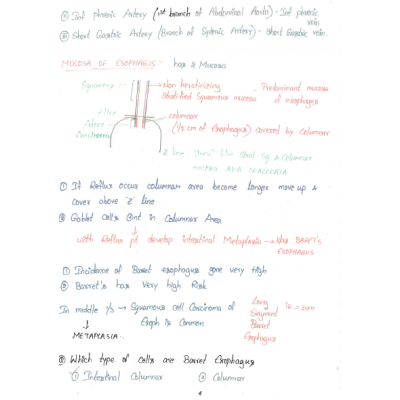 Inf phrenic Artery (1st branch of Abdominal Aorta) - Inf phrenic vein
Short Gastric Artery (Branch of Splenic Artery) - Short Gastric vein.
MUCOSA OF ESOPHAGUS:- has 2 Mucosa
Squamous Non keratinizing Predominant mucosa
Stratified Squamous mucosa of esophagus
Z line columnar
Adeno (1/2 cm of Esophagus) covered by Columnar
Carcinoma
Z line Junc b/w Strat Sq & Columnar
mucosa AKA
① If Reflux occur columnar area become longer move up &
cover above 'Z' line
② Goblet cells in Columnar Area
with Reflux pt develop intestinal Metaplasia → ESOPHAGUS
① Incidence of Barret esophagus gone very High
② Barret's has Very high Risk
In middle 1/3 → Squamous cell Carcinoma of Long is
Esoph is Common Segment
METAPLASIA.. Barret
Esophagus
Which type of cells are Barret Esophagus
① Intestinal Columnar ② Columnar
4